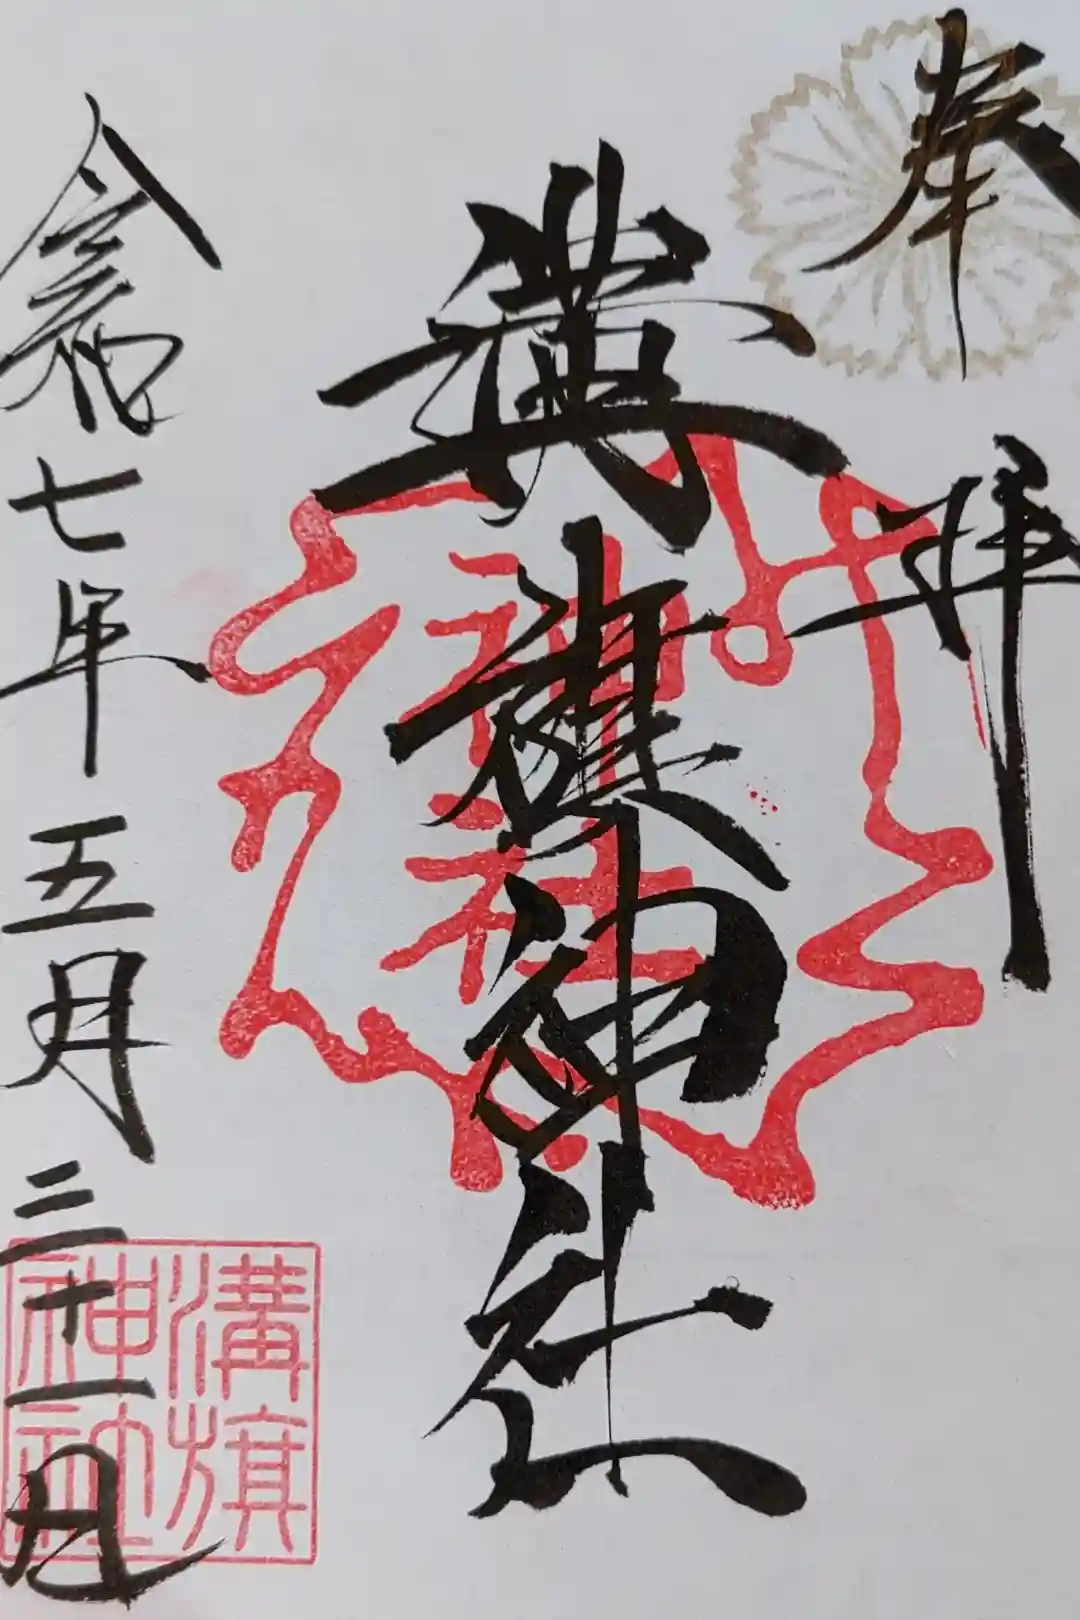 奉拝
溝旗神社
令和七年五月三十一日
神社
溝旗神社